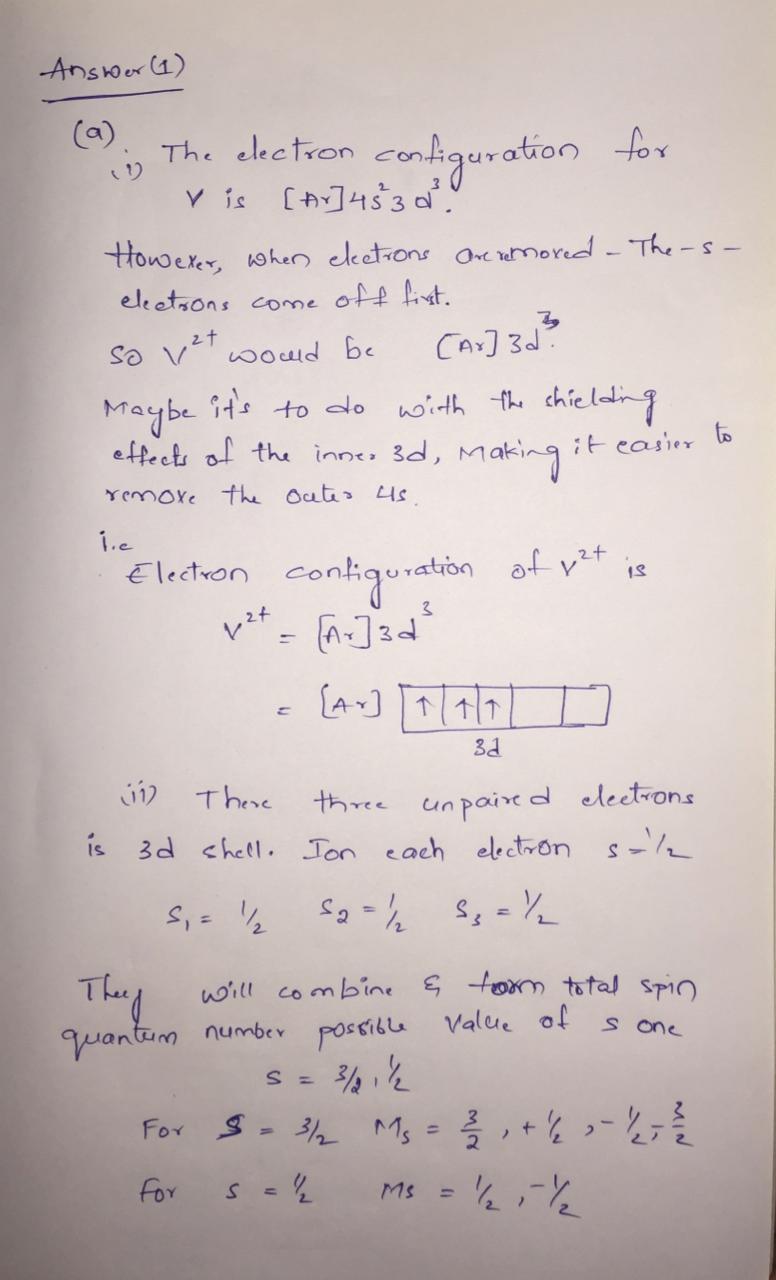 Answer (1)
(a)
(i) The electron configuration for
V is [Ar]4s²3d³.
However, when electrons are removed - The - s -
electrons come off first.
So V²⁺ would be [Ar] 3d³.
Maybe it's to do with the shielding
effects of the inner 3d, Making it easier to
remove the outer 4s.
i.e
Electron configuration of V²⁺ is
V²⁺ = [Ar] 3d³
= [Ar] ↑ ↑ ↑
3d
(ii) There three unpaired electrons
is 3d shell. Ion each electron s = 1/2
S₁ = 1/2 S₂ = 1/2 S₃ = 1/2
They will combine & form total spin
quantum number possible Value of s one
s = 3/2, 1/2
For S = 3/2 Ms = 3/2, +1/2, -1/2, -3/2
for s = 1/2 Ms = 1/2, -1/2